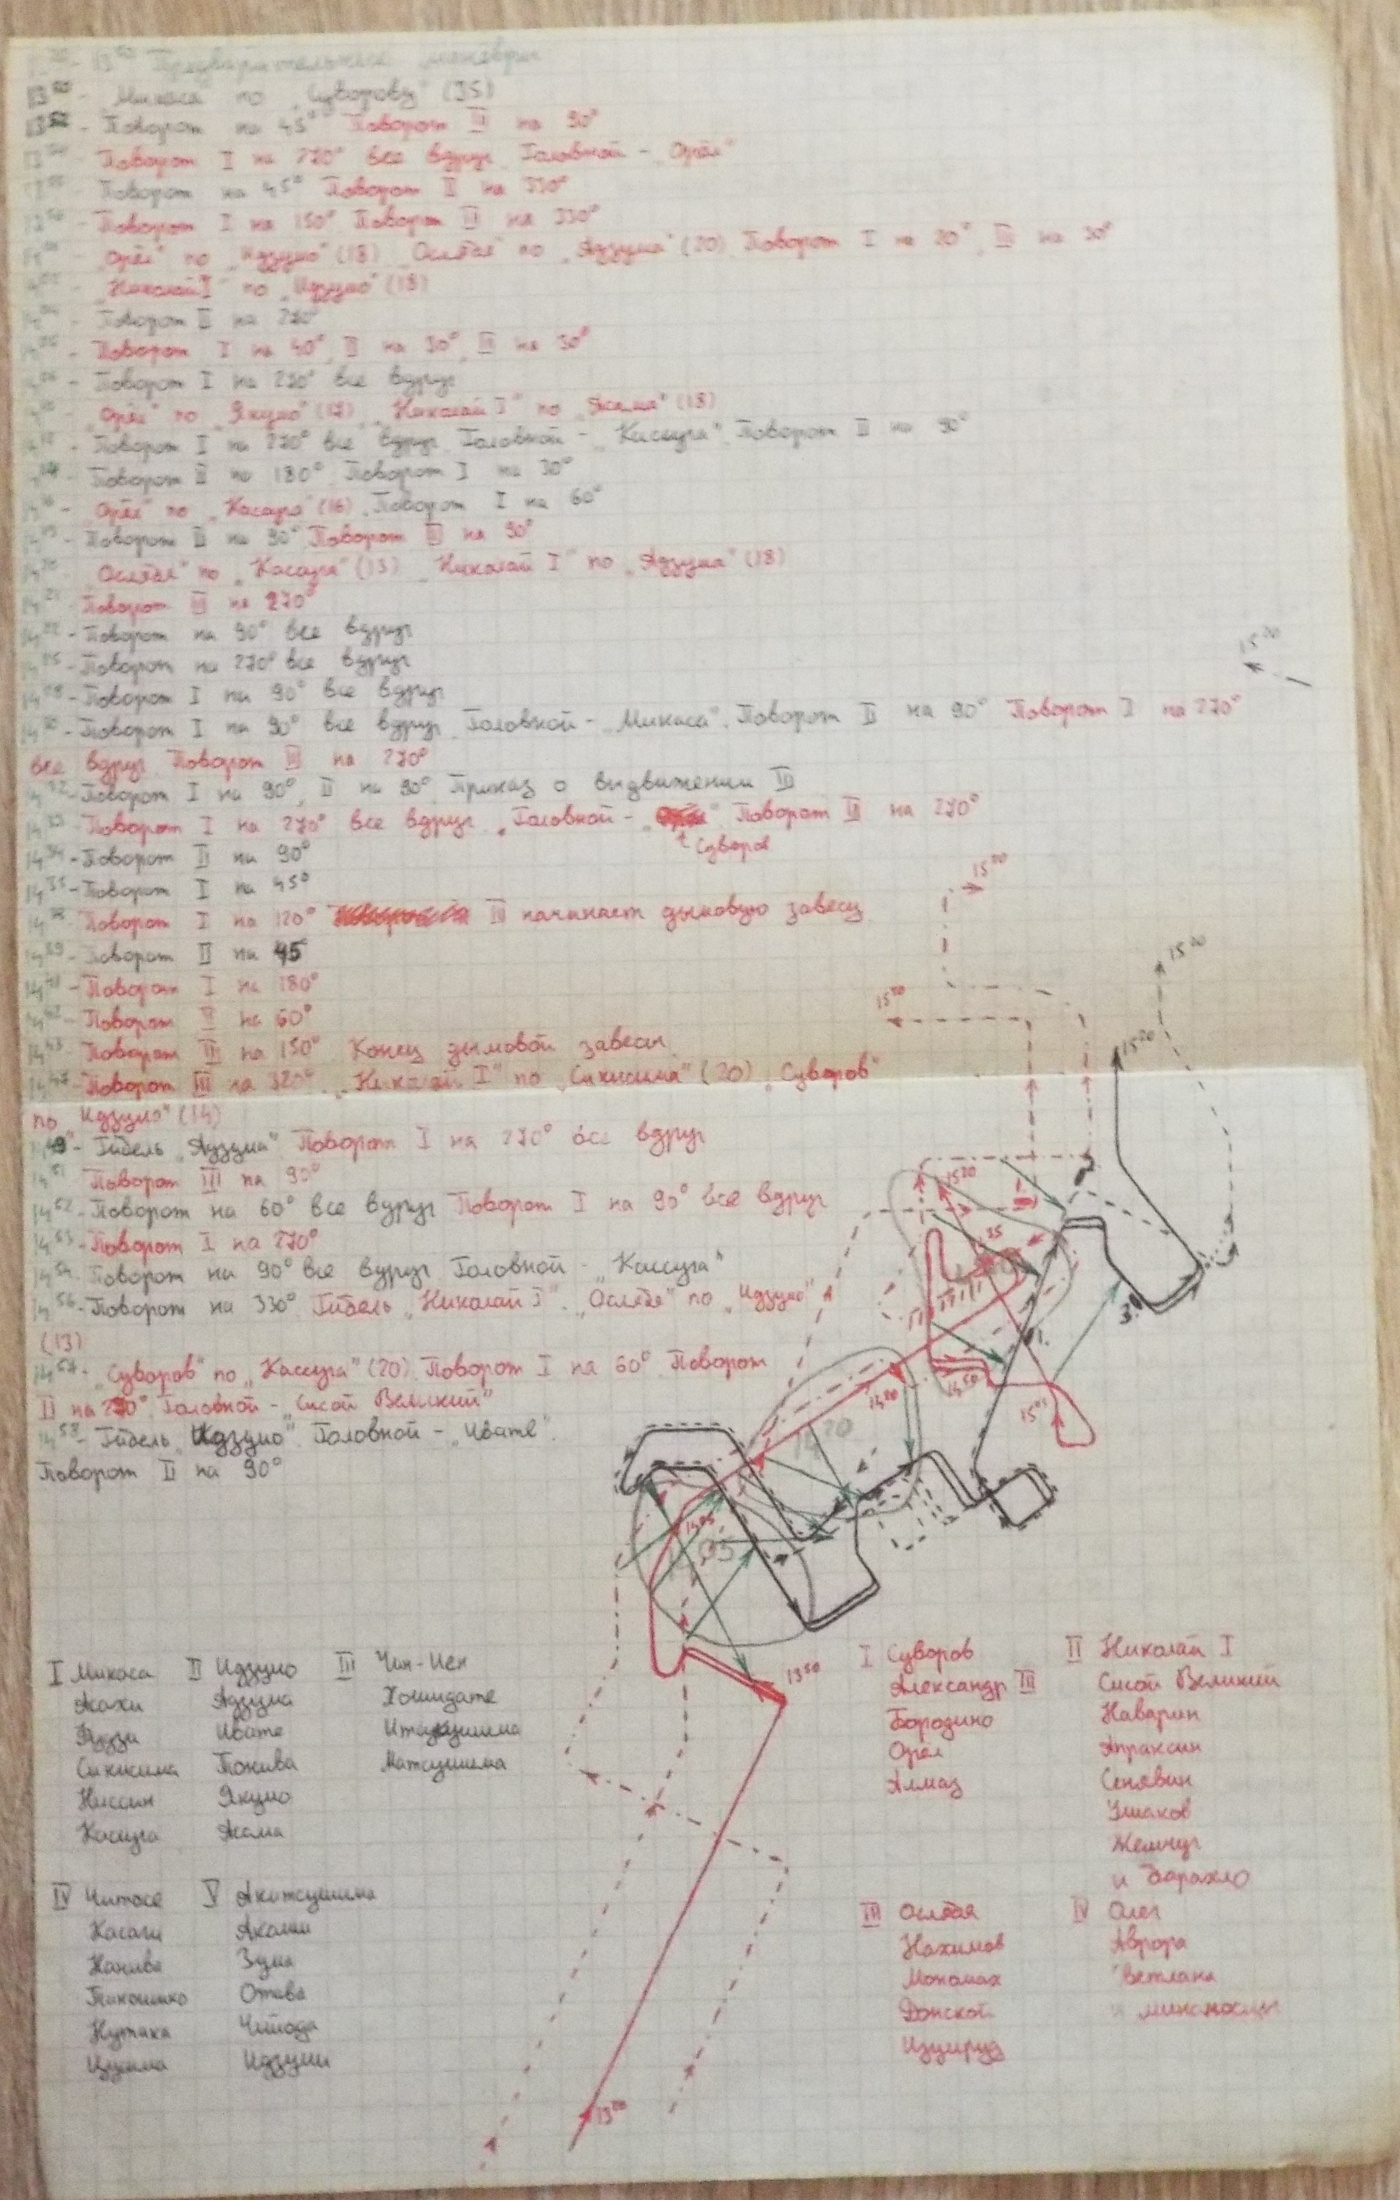 13⁵⁰ Предварительные манёвры
13⁵⁰ - „Микаса" по „Суворову" (35)
13⁵² - Поворот на 45° Поворот III на 90°
Поворот I на 270° все вдруг. Головной - „Орёл"
Поворот на 45° Поворот II на 330°
Поворот I на 150° Поворот III на 330°
„Орёл" по „Идзумо" (18) „Ослябя" по „Адзума" (20) Поворот I на 20°, III на 30°
„Николай I" по „Идзумо" (18)
Поворот II на 270°
Поворот I на 40°, II на 30°, III на 30°
Поворот I на 270° все вдруг
„Орёл" по „Якумо" (17) „Николай I" по „Асама" (18)
Поворот I на 270° все вдруг. Головной - „Кассуга". Поворот II на 90°
Поворот II на 180° Поворот I на 30°
„Орёл" по „Касуга" (16). Поворот I на 60°
Поворот II на 90° Поворот III на 90°
„Ослябя" по „Касуга" (13) „Николай I" по „Адзума" (18)
14²¹ Поворот III на 270°
14²² - Поворот на 90° все вдруг
14²⁵ - Поворот на 270° все вдруг
14²⁸ - Поворот I на 90° все вдруг
14³⁰ - Поворот I на 90° все вдруг. Головной - „Микаса". Поворот II на 90° Поворот I на 270°
все вдруг. Поворот III на 270°
14³² - Поворот I на 90°, II на 90°. Приказ о выдвижении III
14³³ - Поворот I на 270° все вдруг. Головной - Поворот III на 270°
Суворов
14³⁴ - Поворот II на 90°
14³⁵ - Поворот I на 45°
Поворот I на 120° III начинает дымовую завесу
14³⁹ - Поворот II на 45
Поворот I на 180°
14⁴² - Поворот II на 60°
14⁴³ - Поворот III на 150°. Конец дымовой завесы
14⁴⁷ - Поворот III на 320° „Николай I" по „Сикисима" (20) „Суворов"
по „Идзумо" (14)
14⁴⁹ - Гибель „Адзума" Поворот I на 270° все вдруг
14⁵¹ Поворот III на 90°
14⁵² - Поворот на 60° все вдруг Поворот I на 90° все вдруг
14⁵³ - Поворот I на 270°
14⁵⁴ - Поворот на 90° все вдруг. Головной - „Кассуга"
14⁵⁶ - Поворот на 330° Гибель „Николай I". „Ослябя" по „Идзумо"
(13)
14⁵⁷ - „Суворов" по „Кассуга" (20). Поворот I на 60° Поворот
II на 270°. Головной - „Сисой Великий"
14⁵⁸ - Гибель „Идзумо". Головной - „Ивате".
Поворот II на 90°
15²⁰
15²⁰
15²⁰
15²⁰
15²⁰
15²⁰
14⁵⁰
15⁰⁵
14²⁰
14²⁰
14⁰⁵
13⁵⁰
13⁰⁰
I Микаса II Идзумо III Чин-Иен
Асахи Адзума Хошидате
Фудзи Ивате Итцукушима
Сикисима Токива Матсушима
Ниссин Якумо
Касуга Асама
IV Читосе V Акитсушима
Касаги Акаши
Нанива Зума
Такошихо Отава
Нутака Чийода
Цушима Идзуми
I Суворов II Николай I
Александр III Сисой Великий
Бородино Наварин
Орел Апраксин
Алмаз Сенявин
Ушаков
Жемчуг
и барахло
III Ослябя IV Олег
Нахимов Аврора
Мономах Светлана
Донской и миноносцы
Изумруд